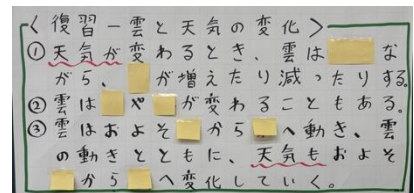 〈復習ー雲と天気の変化〉
①天気が変わるとき、雲は な
がら、 が増えたり減ったりする。
②雲は や が変わることもある。
③雲はおよそ から へ動き、雲
の動きとともに、天気もおよそ
 から へ変化していく。